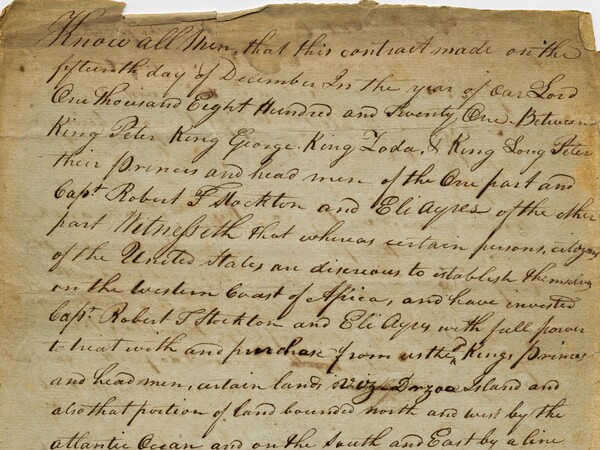 Know all Men, that this contract made on the
fifteenth day of December In the year of our Lord
One Thousand Eight Hundred and Twenty One Between
King Peter King George, King Zoda, & King Long Peter
their Princes and head men of the One part and
Capt. Robert F Stockton and Eli Ayres of the other
part Witnesseth that whereas certain persons, citizens
of the United States are discreous to establish themselves
on the Western Coast of Africa, and have invested
Capt. Robert F Stockton and Eli Ayres with full power
to treat with and purchase from us the sd Kings Princes
and head men, certain lands viz Dorzoa Island and
also that portion of land bounded north and west by the
atlantic Ocean and on the South and East by a line